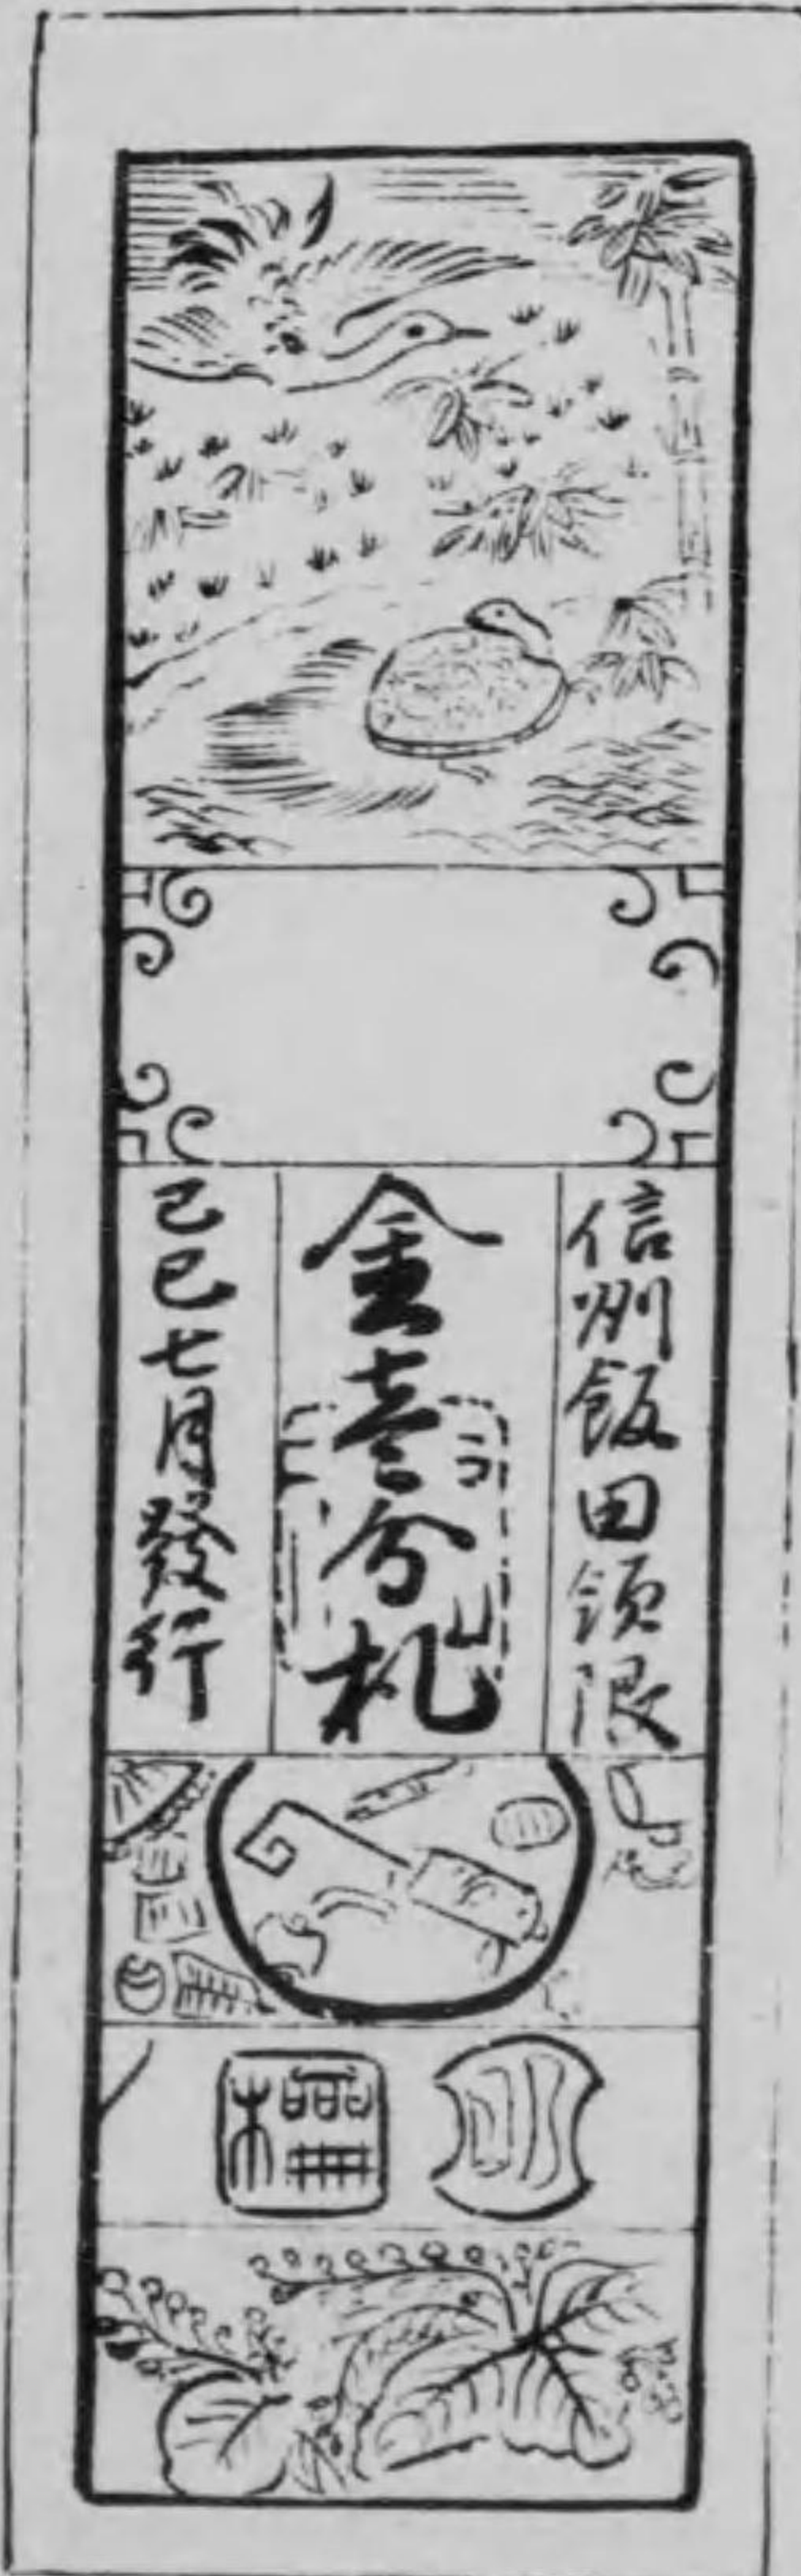 信州飯田領限
金壱分札
己巳七月發行